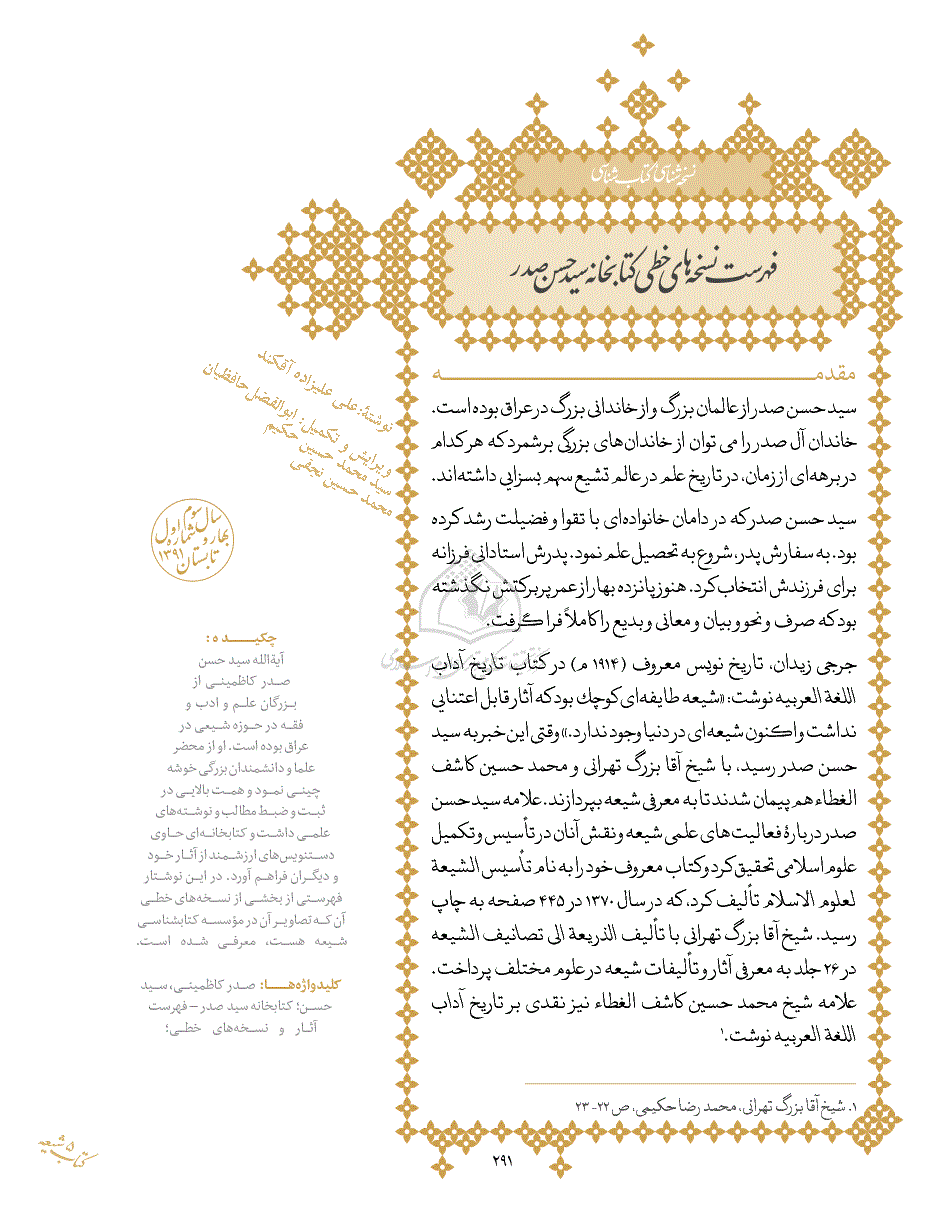 نسخه‌شناسی کتاب‌شناسی
فهرست نسخه‌های خطی کتابخانه سید حسن صدر
نوشتۀ: علی علیزاده آفکند
ویرایش و تکمیل: ابوالفضل حافظیان
سید محمد حسین حکیم
محمد حسین نجفی
مقدمه
سید حسن صدر از عالمان بزرگ و از خاندانی بزرگ در عراق بوده است.
خاندان آل صدر را می توان از خاندان‌های بزرگی برشمرد که هر کدام
در برهه‌ای از زمان، در تاریخ علم در عالم تشیع سهم بسزایی داشته‌اند.
سید حسن صدر که در دامان خانواده‌ای با تقوا و فضیلت رشد کرده
بود. به سفارش پدر، شروع به تحصیل علم نمود. پدرش استادانی فرزانه
برای فرزندش انتخاب کرد. هنوز پانزده بهار از عمر پر برکتش نگذشته
بود که صرف و نحو و بیان و معانی و بدیع را کاملاً فرا گرفت.
جرجی زیدان، تاریخ نویس معروف (۱۹۱۴ م) در کتاب تاریخ آداب
اللغة العربیه نوشت: «شیعه طایفه‌ای کوچك بود که آثار قابل اعتنایی
نداشت و اکنون شیعه‌ای در دنیا وجود ندارد.» وقتی این خبر به سید
حسن صدر رسید، با شیخ آقا بزرگ تهرانی و محمد حسین کاشف
الغطاء هم پیمان شدند تا به معرفی شیعه بپردازند. علامه سید حسن
صدر دربارۀ فعالیت‌های علمی شیعه و نقش آنان در تأسیس و تکمیل
علوم اسلامی تحقیق کرد و کتاب معروف خود را به نام تأسیس الشیعة
لعلوم الاسلام تألیف کرد، که در سال ۱۳۷۰ در ۴۴۵ صفحه به چاپ
رسید. شیخ آقا بزرگ تهرانی با تألیف الذریعة الی تصانیف الشیعه
در ۲۶ جلد به معرفی آثار و تألیفات شیعه در علوم مختلف پرداخت.
علامه شیخ محمد حسین کاشف الغطاء نیز نقدی بر تاریخ آداب
اللغة العربیه نوشت.۱
۱. شیخ آقا بزرگ تهرانی، محمد رضا حکیمی، ص ۲۲-۲۳
سال سوم
شماره اول
بهار و
تابستان ۱۳۹۱
چکیـــده:
آیةالله سید حسن
صدر کاظمینی از
بزرگان علم و ادب و
فقه در حوزه شیعی در
عراق بوده است. او از محضر
علما و دانشمندان بزرگی خوشه
چینی نمود و همت بالایی در
ثبت و ضبط مطالب و نوشته‌های
علمی داشت و کتابخانه‌ای حاوی
دستنویس‌های ارزشمند از آثار خود
و دیگران فراهم آورد. در این نوشتار
فهرستی از بخشی از نسخه‌های خطی
آن که تصاویر آن در مؤسسه کتابشناسی
شیعه هست، معرفی شده است.
کلیدواژه‌هــا: صدر کاظمینی، سید
حسن؛ کتابخانه سید صدر – فهرست
آثار و نسخه‌های خطی؛
کتاب شیعه ۵
۲۹۱